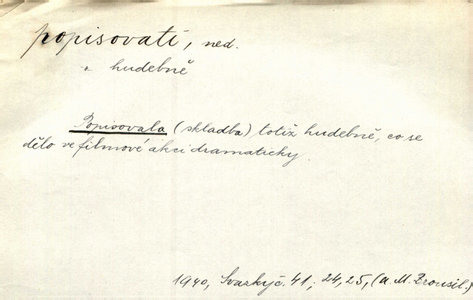 popisovati, ned.
" hudebně
Popisovala (skladba) totiž hudebně, co se
dělo ve filmové akci dramaticky.
1940, č. 41, 24, 25, (a. M.